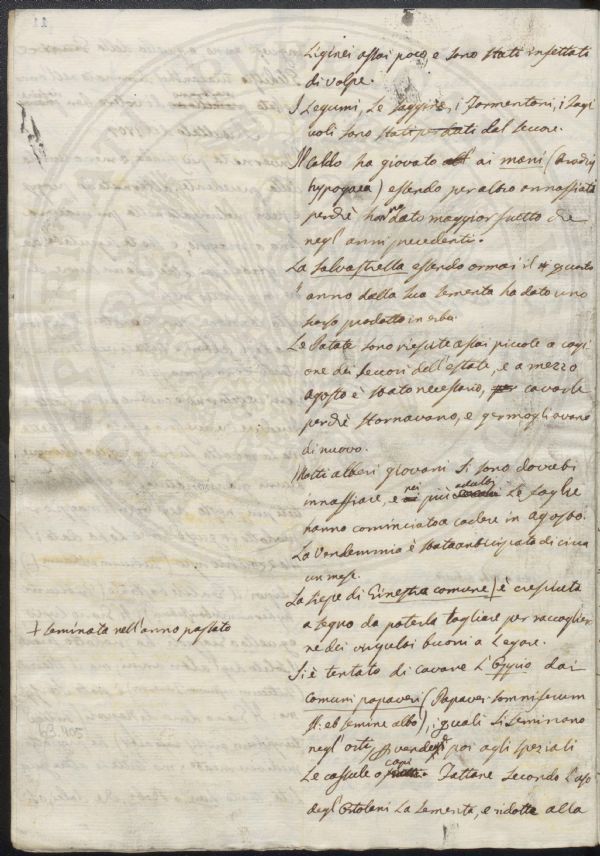 11
Liginei assai poco e sono stati infettati
di volpe.
I Legumi, Le saggine, i Formentoni, i Fagi
uoli sono stati perduti dal seccore.
Il caldo ha giovato all' ai mani (Arachis
hypogaea) essendo per altro annaffiati
perchè hanno dato maggior frutto che
negl' anni precedenti.
La salvastrella essendo ormai il quarto
anno dalla sua sementa ha dato uno
scarso prodotto in erba.
Le Patate sono riescite assai piccole a cagi
one dei seccori dell' estate, e a mezzo
agosto è stato necessario, per cavarle
perchè stornavano, e germogliavano
di nuovo.
Molti alberi giovani si sono dovuti
innaffiare, e nei più adulti Le foglie
hanno cominciato a cadere in Agosto.
La Vendemmia è stata anticipata di circa
un mese.
La siepe di Ginestra comune + è cresciuta
+ seminata nell' anno passato
a segno da poterla tagliare per raccoglier
ne dei virgulti buoni a Legare.
Si è tentato di cavare L' Oppio dai
comuni papaveri (Papaver somniferum
fl: et semine albo), i quali si seminano
negl' orti, vendesi poi agli speziali
Le cassule o capi. Fattane secondo L' uso
degl' Ortolani La sementa, e ridotte alla